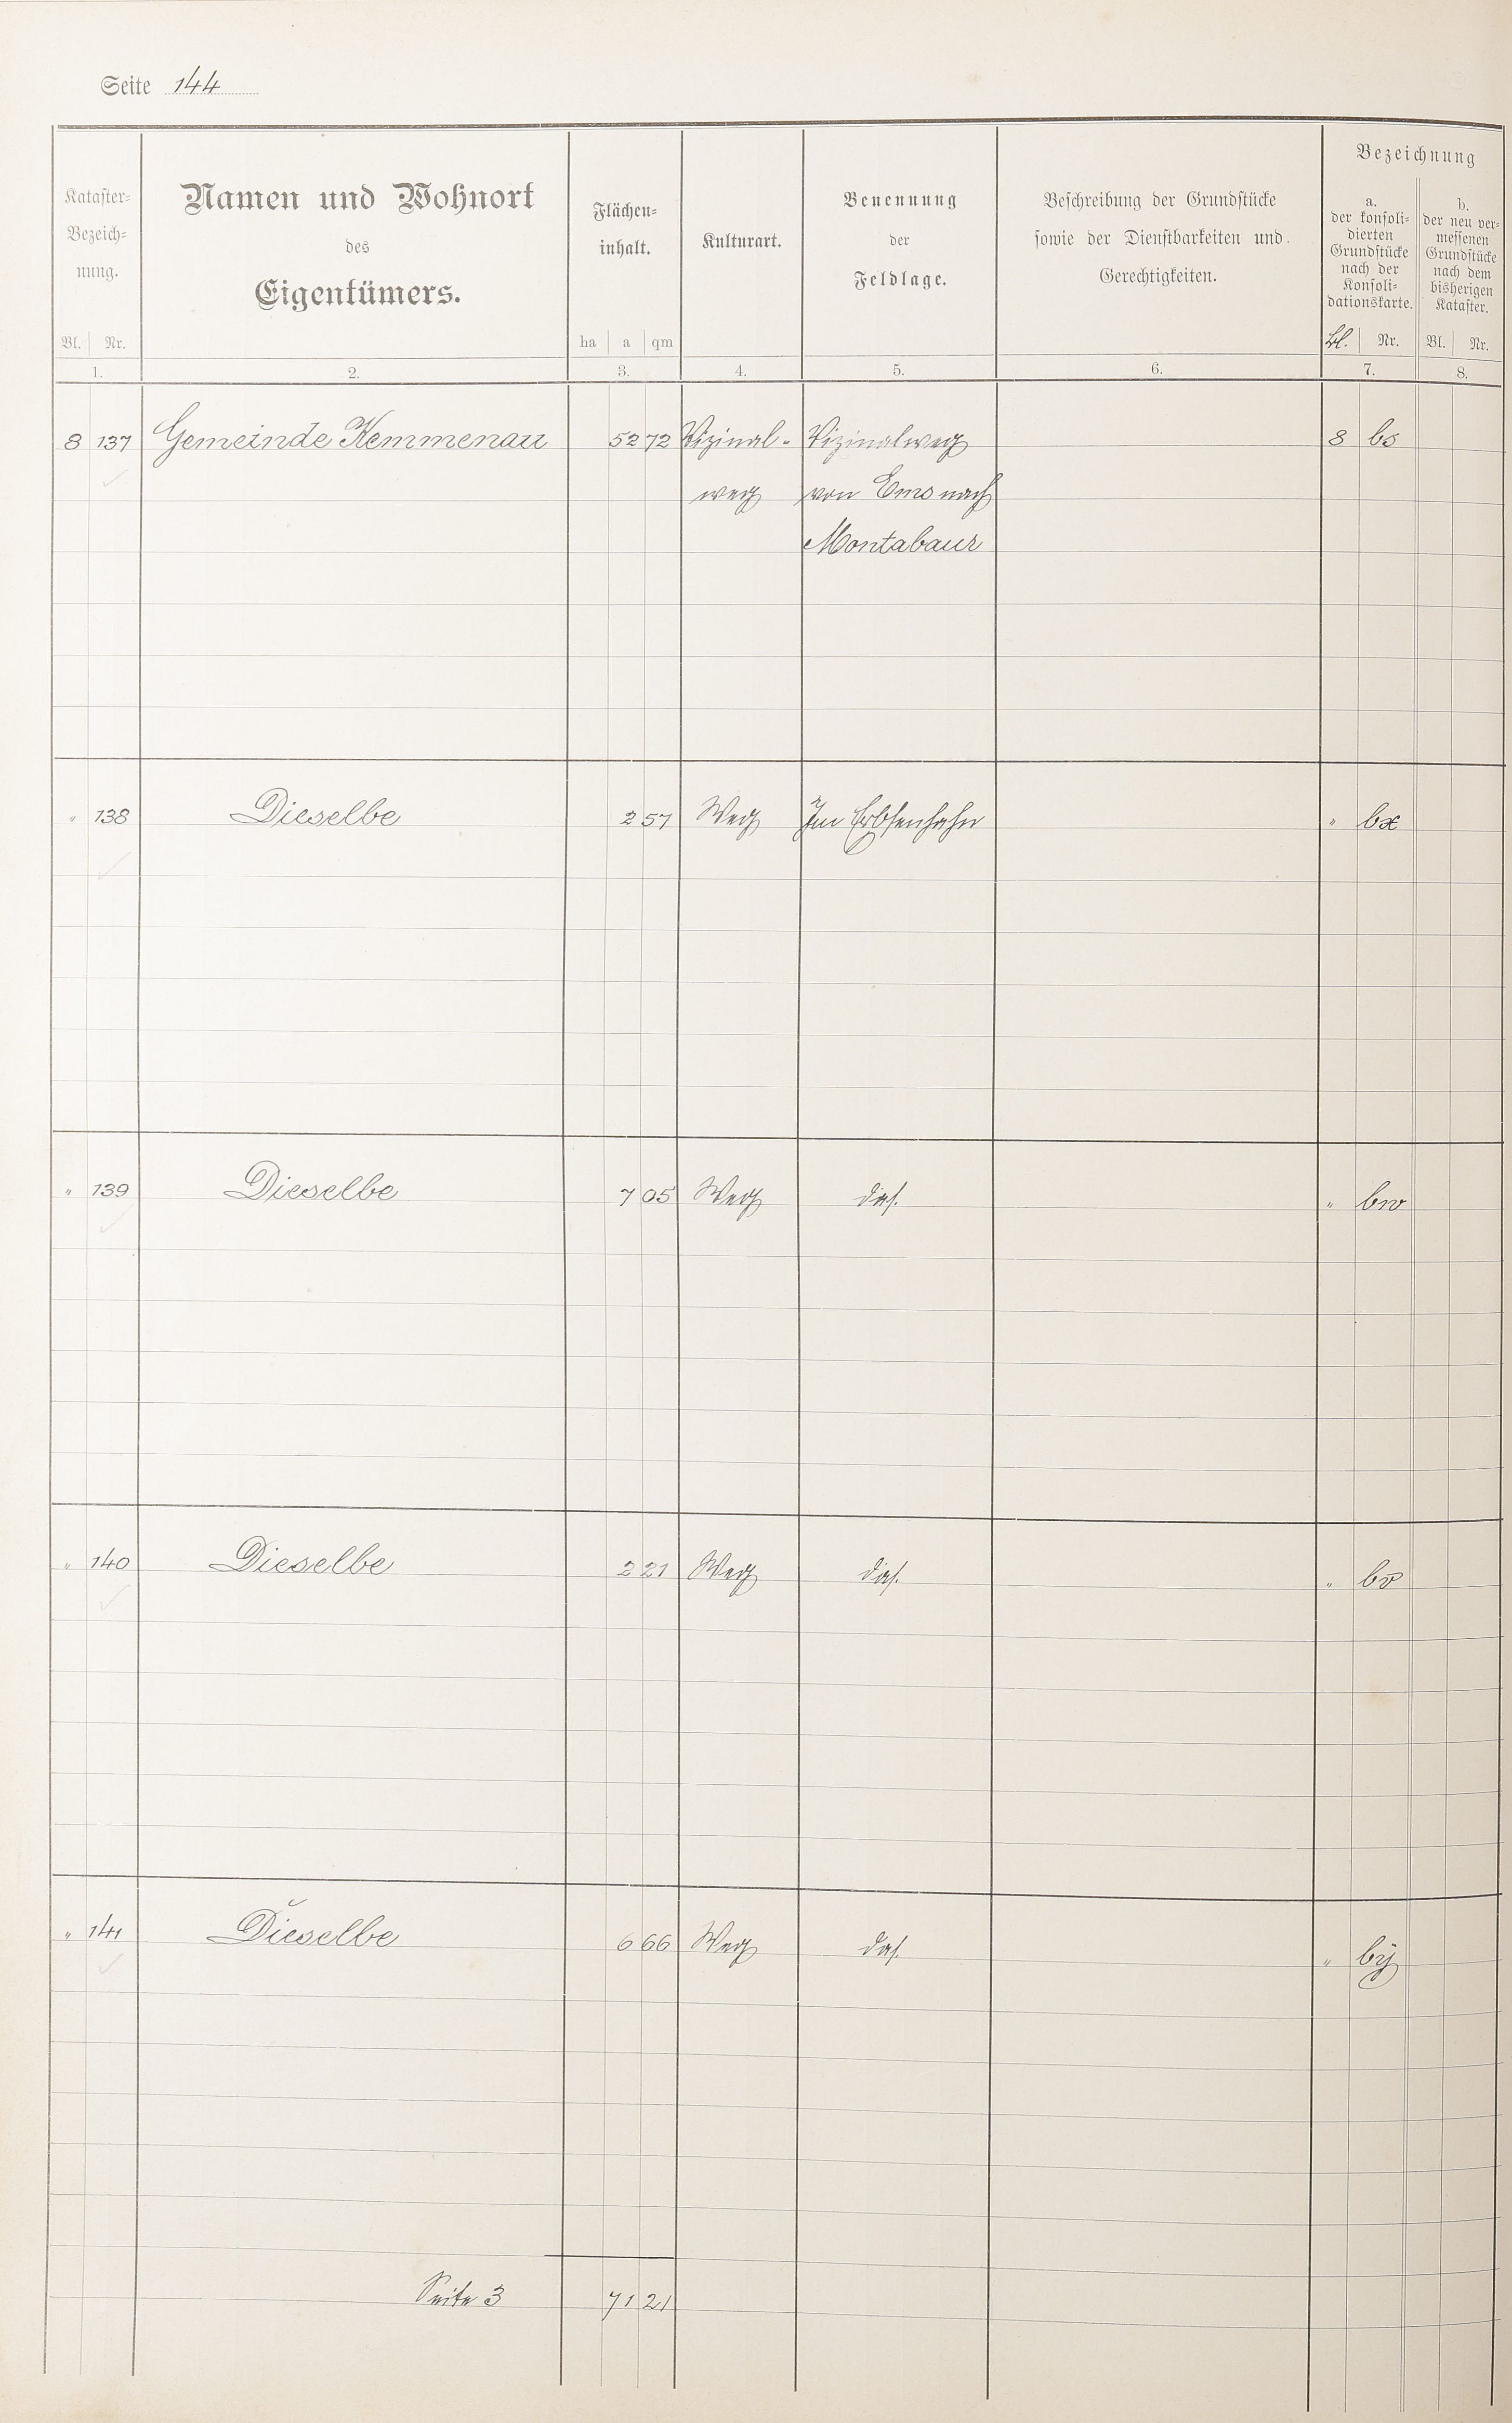 Seite 144
Kataster-
Bezeich-
nung.
Bl. Nr.
1.
Namen und Wohnort
des
Eigentümers.
2.
Flächen-
inhalt.
ha a qm
3.
Kulturart.
4.
Benennung
der
Feldlage.
5.
Beschreibung der Grundstücke
sowie der Dienstbarkeiten und
Gerechtigkeiten.
6.
Bezeichnung
a.
der konsoli-
dierten
Grundstücke
nach der
Konsoli-
dationskarte.
Bl. Nr.
7.
b.
der neu ver-
messenen
Grundstücke
nach dem
bisherigen
Kataster.
Bl. Nr.
8.
8 137 Gemeinde Kemmenau 52 72 Vizinal- Vizinalweg 8 bs
weg von Ems nach
Montabaur
" 138 Dieselbe 2 57 Weg Im Erbsenhahn " bx
" 139 Dieselbe 7 05 Weg das. " bw
" 140 Dieselbe 2 21 Weg das. " bv
" 141 Dieselbe 6 66 Weg das. " bÿ
Seite 3 71 21